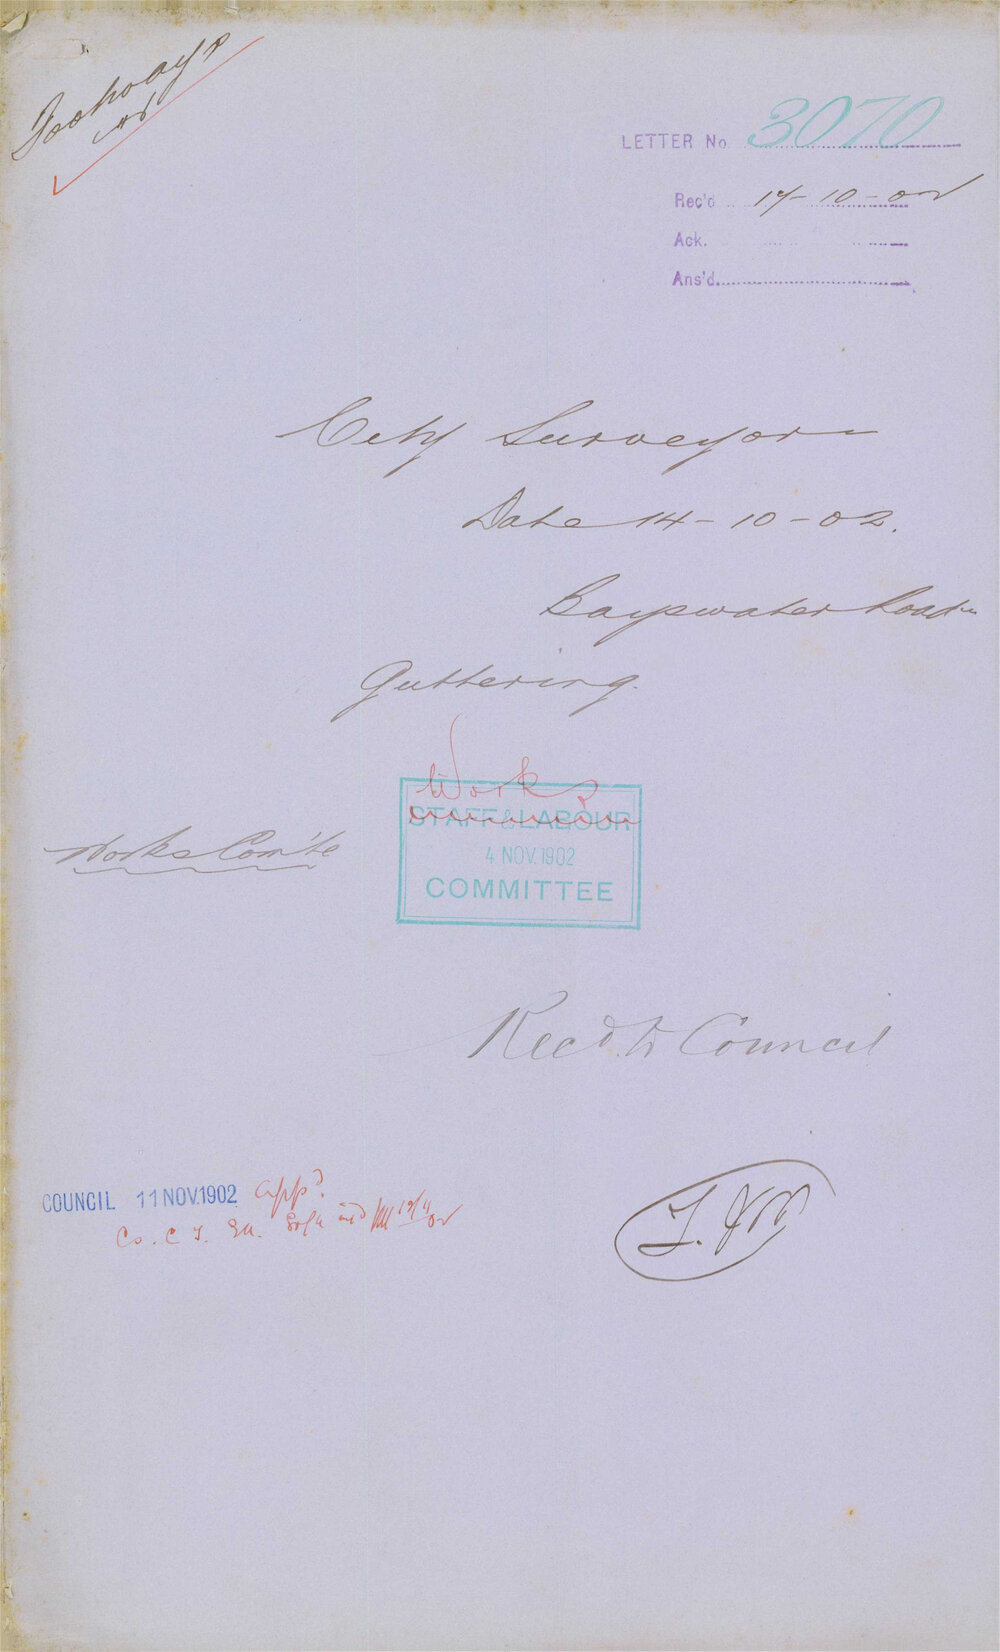 Footways
LETTER No 3070
Rec'd 14-10-02
Ack.
Ans'd.
City Surveyor
Date 14-10-02.
Bayswater Road
Guttering.
Works
STAFF & LABOUR
4 NOV. 1902
COMMITTEE
Works Com'tee
Recd. to Council
COUNCIL 11 NOV. 1902 appd.
Co. C.